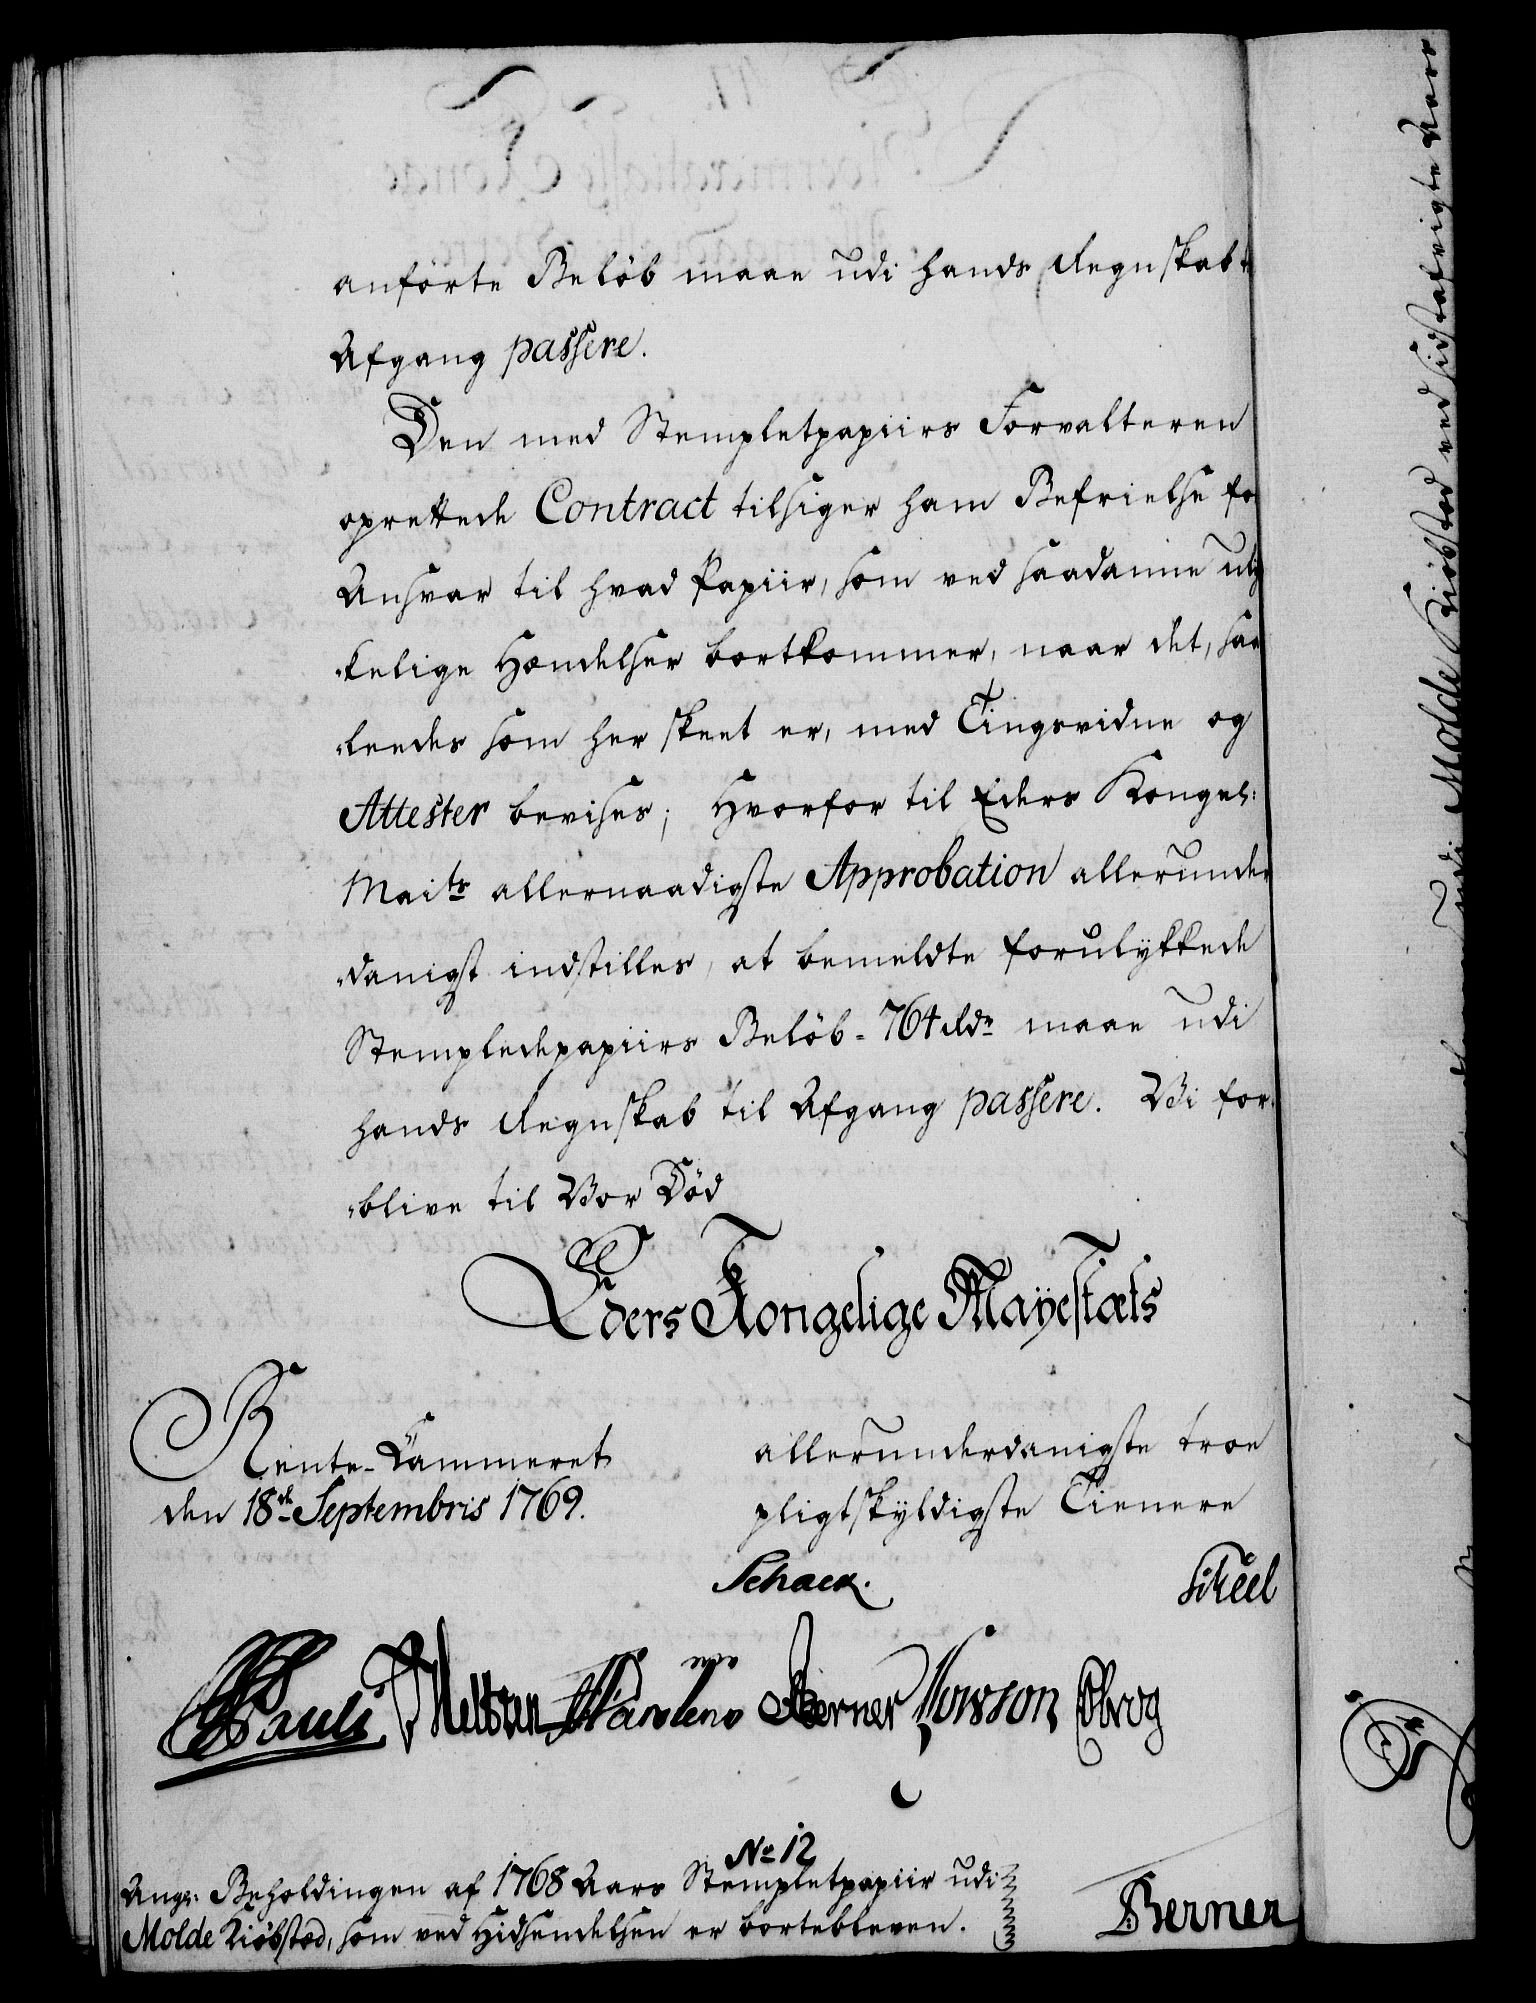 anförte Belöb maae udi hands Regnskab
Afgang passere.
Den med Stempletpapiirs Forvalteren
oprettede Contract tilsiger ham Befrielse for
Ansvar til hvad Papiir, som ved saadanne ulyk
kelige Hændelser bortkommer, naar det, saa
leedes som her skeet er, med Tingsvidne og
Attester bevises; Hvorfor til Eders Kongel:
Maits allernaadigste Approbation allerunder
danigst indstilles, at bemeldte forulykkede
Stempledepapiirs Belöb - 764 Rdr maae udi
hands Regnskab til Afgang passere. Vi for
blive til Vor Död
Eders Kongelige Mayestæts
Rente-Kammeret
den 18de Septembris 1769.
allerunderdanigste troe
pligtskyldigste Tienere
Schack.
Scheel
Pauli Berner Cbrog
No 12
Ang: Beholdingen af 1768 Aars Stempletpapiir udi
Molde Kiöbstæd, som ved Hidsendelsen er bortebleven.
Berner
udi Molde Kiöbstæd ved sidstafvigte Aars